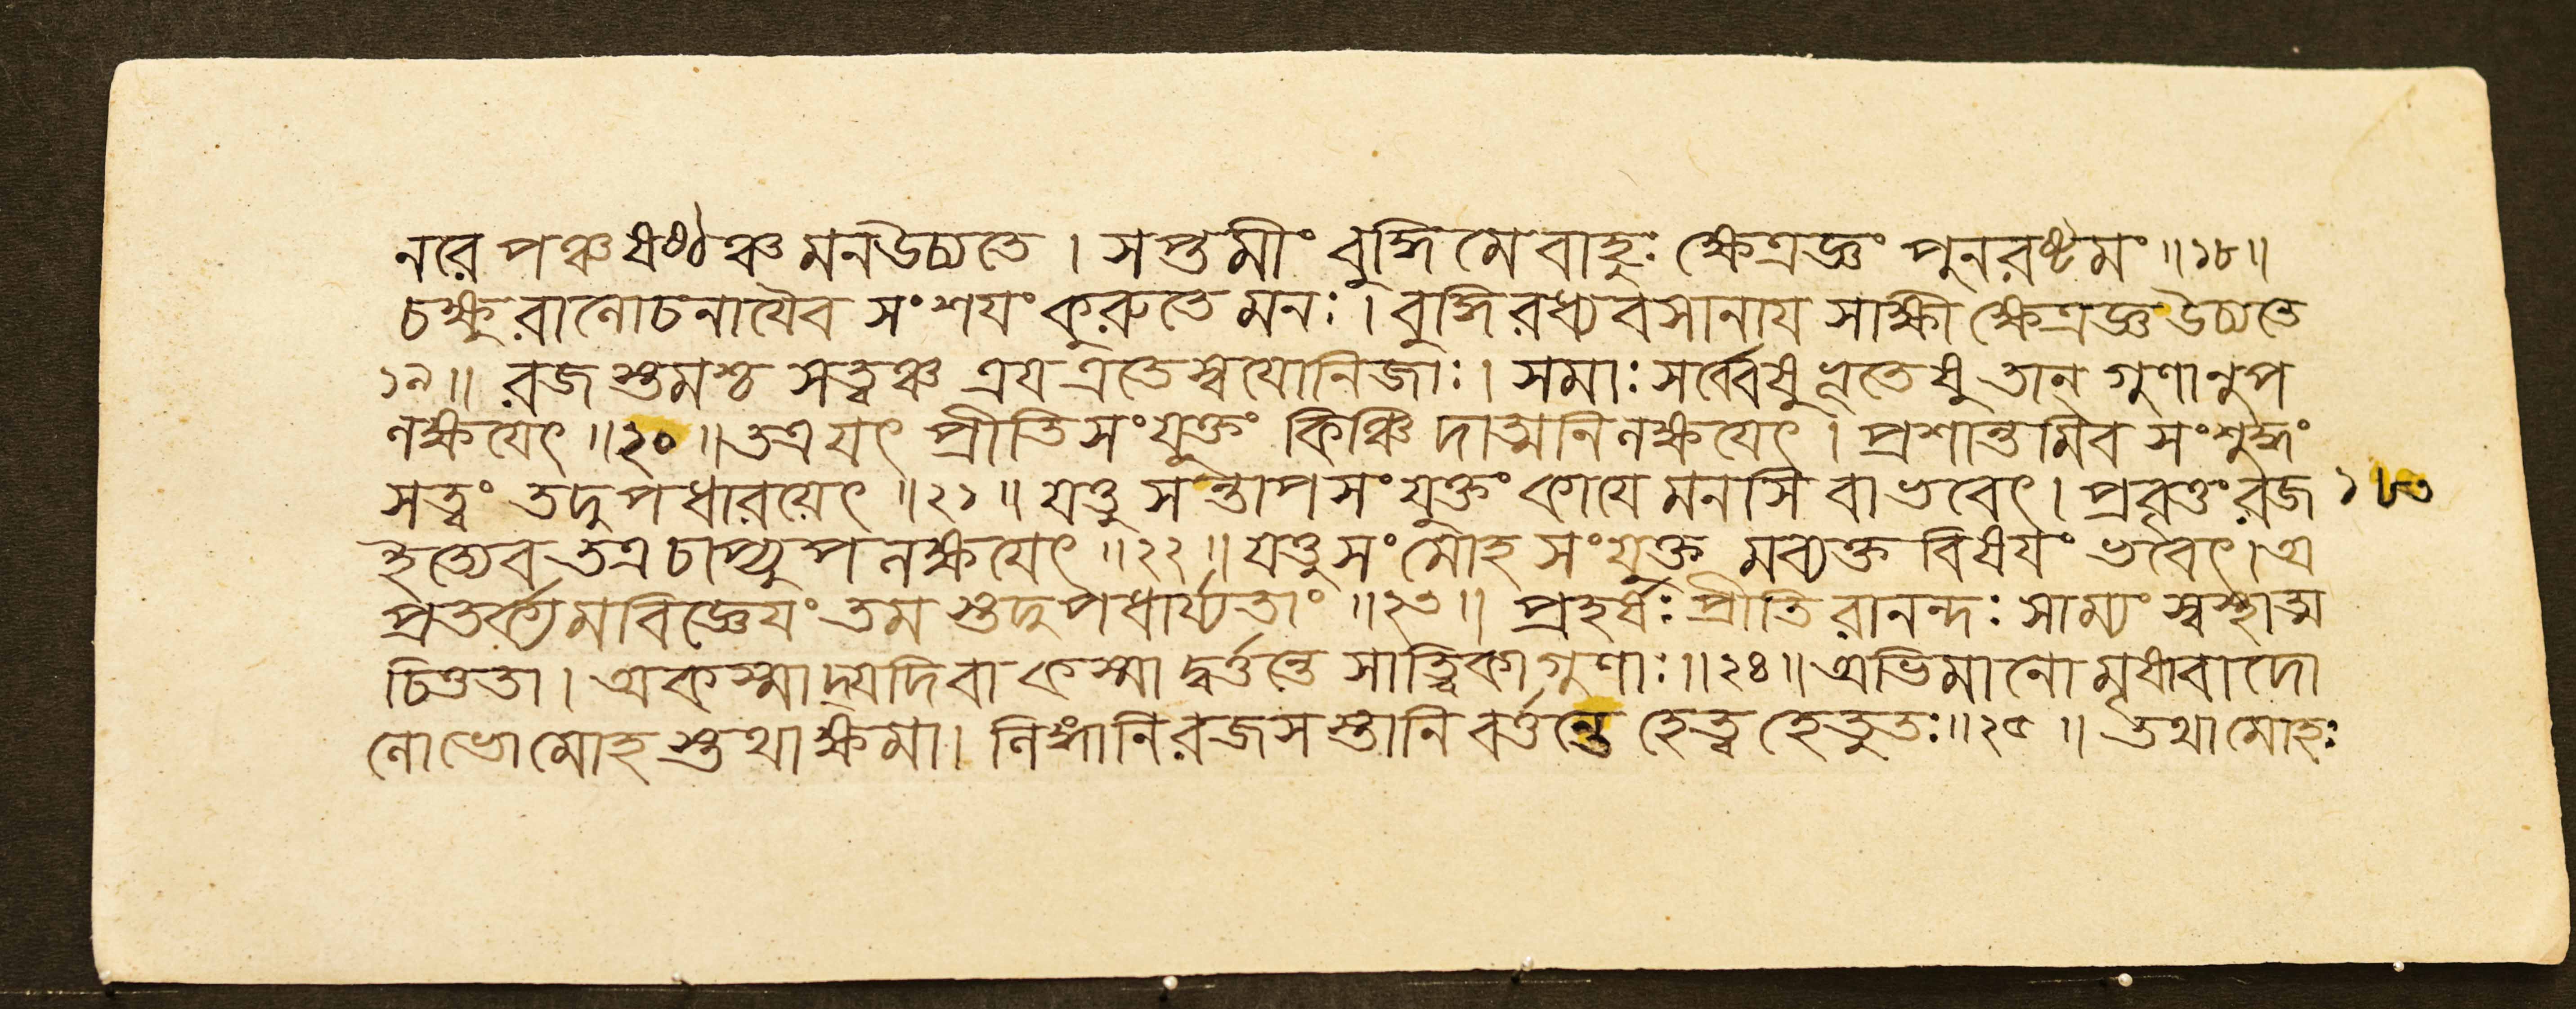 নরে পঞ্চ ষষ্ঠঞ্চ মন উচ্যতে । সপ্তমীং বুদ্ধিমেবাহুঃ ক্ষেত্রজ্ঞং পুনরষ্টমং ॥১৮॥
চক্ষুরালোচনায়ৈব সংশয়ং কুরুতে মনঃ । বুদ্ধিরধ্যবসানায় সাক্ষী ক্ষেত্রজ্ঞ উচ্যতে
১৯॥ রজস্তমশ্চ সত্ত্বঞ্চ ত্রয় এতে স্বযোনিজাঃ । সমাঃ সর্ব্বেষু ভূতেষু তান্ গুণানুপ
লক্ষয়েৎ ॥২০॥ তত্র যৎ প্রীতিসংযুক্তং কিঞ্চিদাত্মনি লক্ষয়েৎ । প্রশান্তমিব সংশুদ্ধং
সত্ত্বং তদুপধারয়েৎ ॥২১॥ যত্তু সন্তাপসংযুক্তং কায়ে মনসি বা ভবেৎ । প্রবৃত্তং রজ ১৮৩
ইত্যেব তত্র চাপ্যুপলক্ষয়েৎ ॥২২॥ যত্তু সংমোহসংযুক্তমব্যক্তবিষয়ং ভবেৎ । অ
প্রতর্ক্যমবিজ্ঞেয়ং তমস্তদুপধার্য্যতাং ॥২৩॥ প্রহর্ষঃ প্রীতিরানন্দঃ সাম্যং স্বস্থাত্ম
চিত্ততা । অকস্মাদ্যদি বা কস্মাদ্বর্ত্তন্তে সাত্ত্বিকা গুণাঃ ॥২৪॥ অভিমানো মৃষাবাদো
লোভো মোহস্তথাক্ষমা । লিঙ্গানি রজসস্তানি বর্ত্তন্তে হেত্বহেতুতঃ ॥২৫॥ তথা মোহঃ